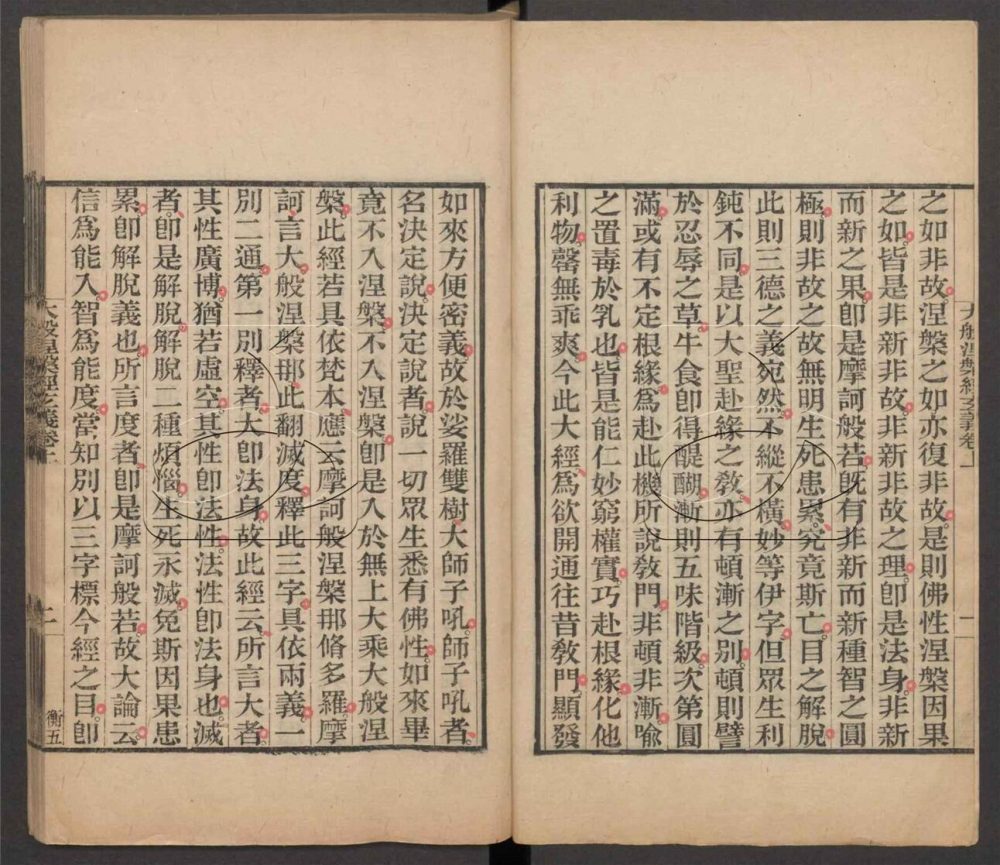 大般涅槃經玄義卷上
一
之如非故涅槃之如亦復非故是則佛性涅槃因果
之如皆是非新非故非新非故之理卽是法身非新
而新之果卽是摩訶般若旣有非新而新種智之圓
極則非故之故無明生死患累究竟斯亡目之解脫
此則三德之義宛然不縱不橫妙等伊字但眾生利
鈍不同是以大聖赴緣之敎亦有頓漸之別頓則譬
於忍辱之草牛食卽得醍醐漸則五味階級次第圓
滿或有不定根緣爲赴此機所說敎門非頓非漸喻
之置毒於乳也皆是能仁妙窮權實巧赴根緣化他
利物罄無乖爽今此大經爲欲開通往昔敎門顯發
如來方便密義故於娑羅雙樹大師子吼師子吼者
名決定說決定說者說一切眾生悉有佛性如來畢
竟不入涅槃不入涅槃卽是入於無上大乘大般涅
槃此經若具依梵本應云摩訶般涅槃那脩多羅摩
訶言大般涅槃那此翻滅度釋此三字具依兩義一
別二通第一別釋者大卽法身故此經云所言大者
其性廣博猶若虛空其性卽法性法性卽法身也滅
者卽是解脫解脫二種煩惱生死永滅免斯因果患
累卽解脫義也所言度者卽是摩訶般若故大論云
信爲能入智爲能度當知別以三字標今經之目卽
大般涅槃經玄義卷上
二
衡五